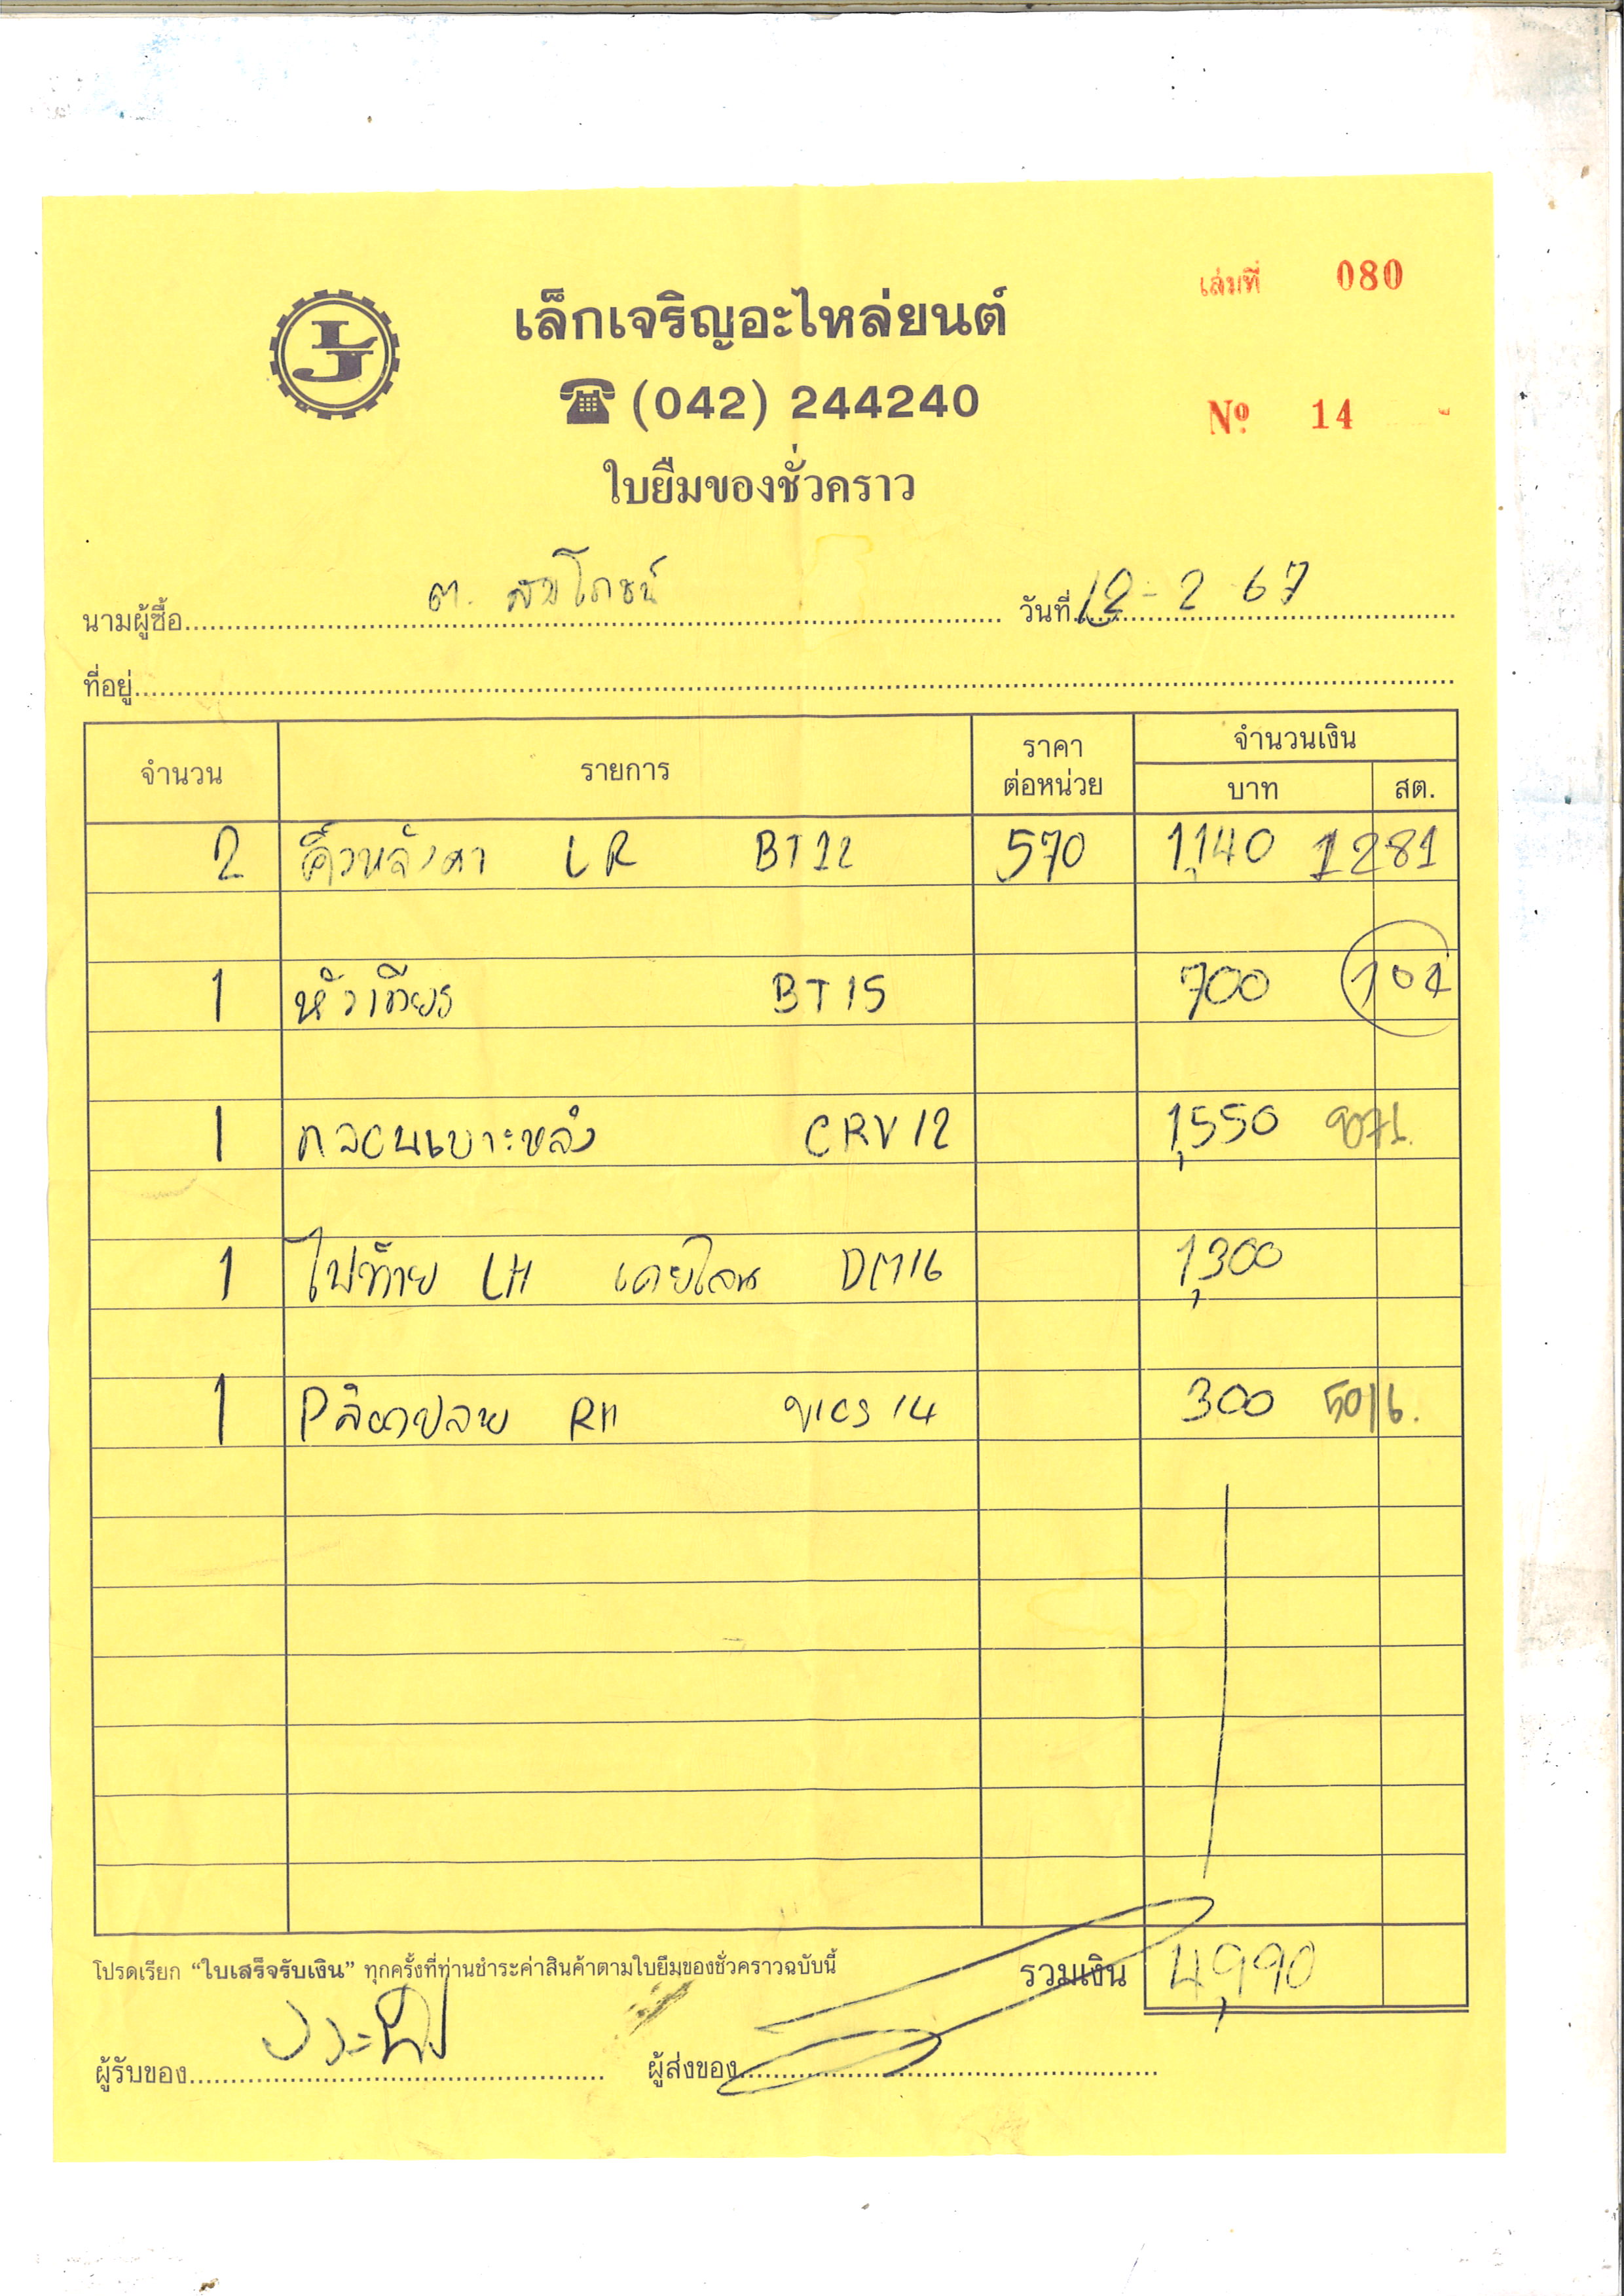 เล่มที่ 080
เล็กเจริญอะไหล่ยนต์
LJ
(042) 244240
Nº 14
ใบยืมของชั่วคราว
นามผู้ซื้อ ต. สมโภชน์ วันที่ 12-2-67
ที่อยู่
จำนวน รายการ ราคาต่อหน่วย จำนวนเงิน
บาท สต.
2 คิ้วหลังคา LR BT12 570 1,140 1281
1 หัวเกียร BT15 700 101
1 กลอนเบาะหลัง CRV12 1,550
1 ไฟท้าย LH เคยโดน DM16 1,300
1 Pลิ้นปลาย RH vios 14 300 5016.
โปรดเรียก “ใบเสร็จรับเงิน” ทุกครั้งที่ท่านชำระค่าสินค้าตามใบยืมของชั่วคราวฉบับนี้ รวมเงิน 4,990
ผู้รับของ ผู้ส่งของ